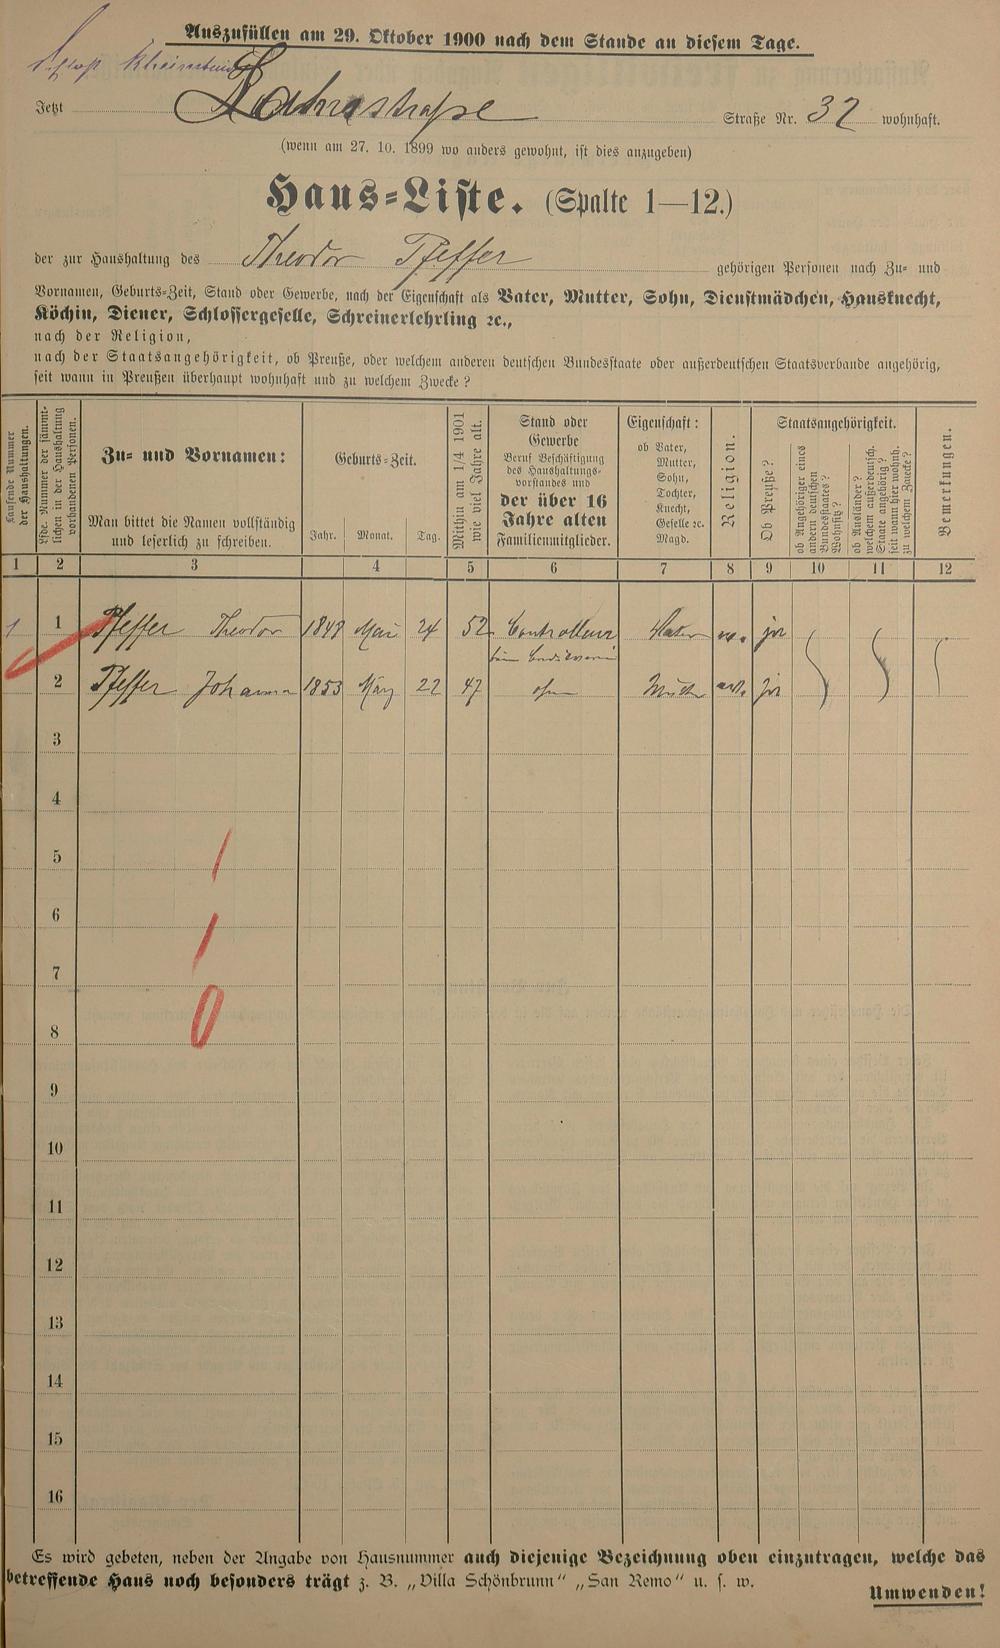 Auszufüllen am 29. Oktober 1900 nach dem Stande an diesem Tage.
Jetzt Lahnstraße Straße Nr. 32 wohnhaft.
(wenn am 27. 10. 1899 wo anders gewohnt, ist dies anzugeben)
Haus=Liste. (Spalte 1—12.)
der zur Haushaltung des Theodor Pfeffer gehörigen Personen nach Zu= und
Vornamen, Geburts=Zeit, Stand oder Gewerbe, nach der Eigenschaft als Vater, Mutter, Sohn, Dienstmädchen, Hausknecht,
Köchin, Diener, Schlossergeselle, Schreinerlehrling ꝛc.,
nach der Religion,
nach der Staatsangehörigkeit, ob Preuße, oder welchem anderen deutschen Bundesstaate oder außerdeutschen Staatsverbande angehörig,
seit wann in Preußen überhaupt wohnhaft und zu welchem Zwecke?
Laufende Nummer der Haushaltungen.
Lfde. Nummer der sämmt=
lichen in der Haushaltung
vorhandenen Personen.
Zu= und Vornamen:
Man bittet die Namen vollständig
und leserlich zu schreiben.
Geburts=Zeit.
Jahr. Monat. Tag.
Mithin am 1/4 1901
wie viel Jahre alt.
Stand oder
Gewerbe
Beruf Beschäftigung
des Haushaltungs=
vorstandes und
der über 16
Jahre alten
Familienmitglieder.
Eigenschaft:
ob Vater,
Mutter,
Sohn,
Tochter,
Knecht,
Geselle ꝛc.
Magd.
Religion.
Staatsangehörigkeit.
Ob Preuße?
ob Angehöriger eines
andern deutschen
Bundesstaates?
Wohnsitz?
ob Ausländer?
welchem außerdeutsch.
Staate angehörig?
seit wann hier wohnh.
zu welchem Zwecke?
Bemerkungen.
1 2 3 4 5 6 7 8 9 10 11 12
1 1 Pfeffer Theodor 1848 Mai 24 52 Controlleur Vater ev. ja
beim
2 Pfeffer Johanna 1853 März 22 47 ohne Mutter ja
3
4
5
6
7
8
9
10
11
12
13
14
15
16
Es wird gebeten, neben der Angabe von Hausnummer auch diejenige Bezeichnung oben einzutragen, welche das
betreffende Haus noch besonders trägt z. B. „Villa Schönbrunn" „San Remo" u. s. w.
Umwenden!